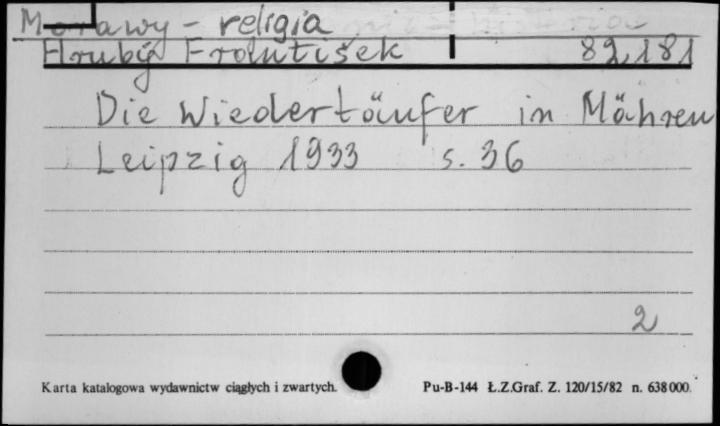 Morawy - religia
Hrubý František 82,181
Die Wiedertäufer in Mähren
Leipzig 1933 s. 36
2
Karta katalogowa wydawnictw ciągłych i zwartych. Pu-B-144 Ł.Z.Graf. Z. 120/15/82 n. 638000.